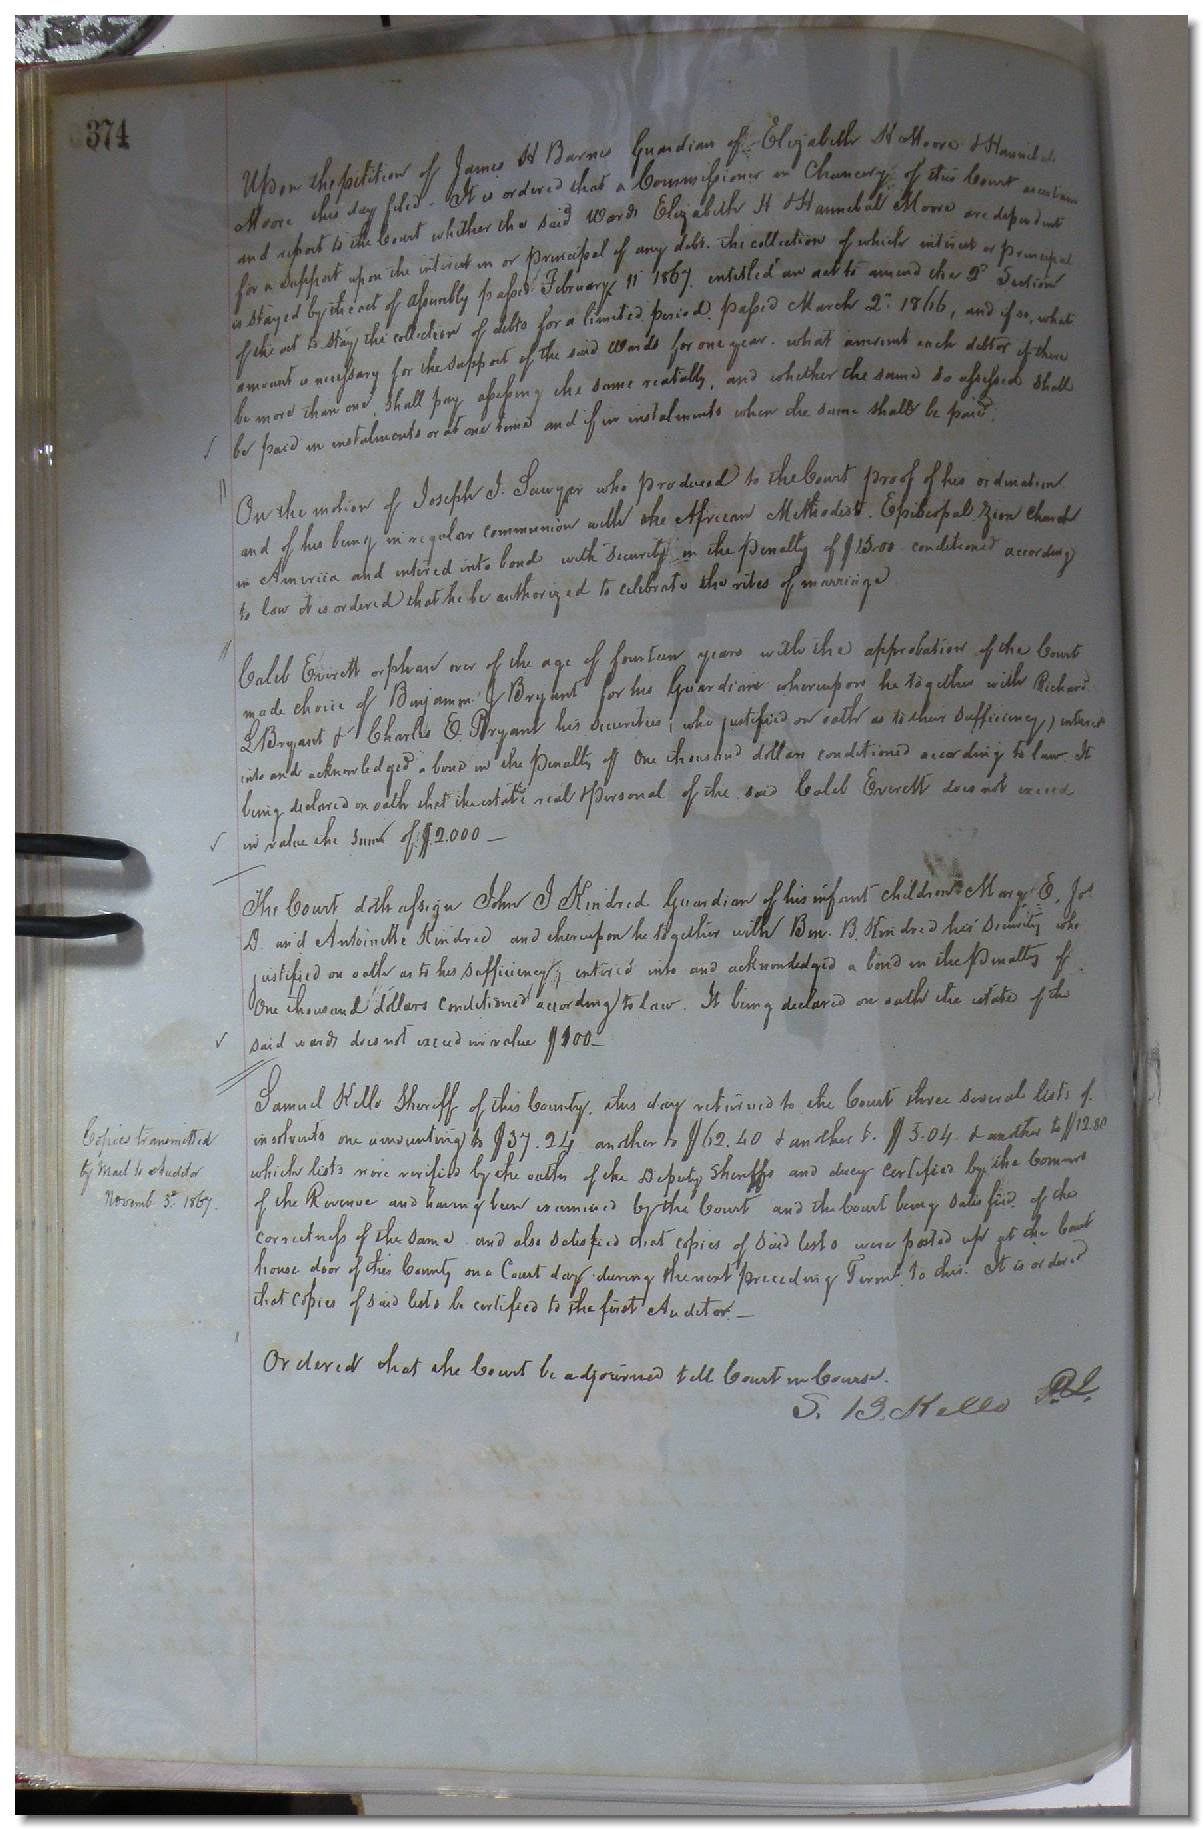 374
Upon the petition of James H Barnes Guardian of Elizabeth H Moore & Hannibal
Moore this day filed. It is ordered that a Commissioner in Chancery of this Court ascertain
and report to the Court whether the said wards Elizabeth H & Hannibal Moore are dependent
for a support upon the interest in or principal of any debt. the collection of which interest or principal
is stayed by the act of Assembly passed February 11 1867. entitled an act to amend the 2d Section
of the act to stay the collection of debts for a limited period. passed March 2d 1866, and if so, what
amount is necessary for the support of the said wards for one year. what amount each debtor if there
be more than one, shall pay assessing the same ratably, and whether the same so assessed shall
be paid in instalments or at one time and if in instalments when the same shall be paid.
On the motion of Joseph J. Sawyer who produced to the Court proof of his ordination
and of his being in regular communion with the African Methodist. Episcopal Zion Church
in America and entered into bond with security in the penalty of $1500 conditioned according
to law it is ordered that he be authorized to celebrate the rites of marriage
Caleb Everett orphan over of the age of fourteen years with the approbation of the Court
made choice of Benjamin J Bryant for his Guardian whereupon he together with Richard
L Bryant & Charles E. Bryant his securities, who justified on oath as to their sufficiency, entered
into and acknowledged a bond in the penalty of One thousand dollars conditioned according to law. It
being declared on oath that the estate real & personal of the said Caleb Everett does not exceed
in value the sum of $2.000 —
The Court doth assign John J Kindred Guardian of his infant children Mary E, Jos
D. and Antoinette Kindred and thereupon he together with Ben. B. Kindred his security who
justified on oath as to his sufficiency, entered into and acknowledged a bond in the penalty of
One thousand dollars conditioned according to law. It being declared on oath the estate of the
said wards does not exceed in value $100 —
Samuel Kello Sheriff of this County, this day returned to the Court three several lists of
insolvents one amounting to $37.24 another to $62.40 & another to $5.04. & another to $12.80
which lists were verified by the oaths of the Deputy Sheriffs and duly certified by the Commrs
of the Revenue and having been examined by the Court and the Court being satisfied of the
correctness of the same and also satisfied that copies of said lists were posted up at the Court
house door of this County on a Court day during the next preceding Term to this. It is ordered
that copies of said lists be certified to the first Auditor. —
Copies transmitted
by Mail to Auditor
Novemb 5th 1867.
Ordered that the Court be adjourned till Court in Course.
S. B. Kello